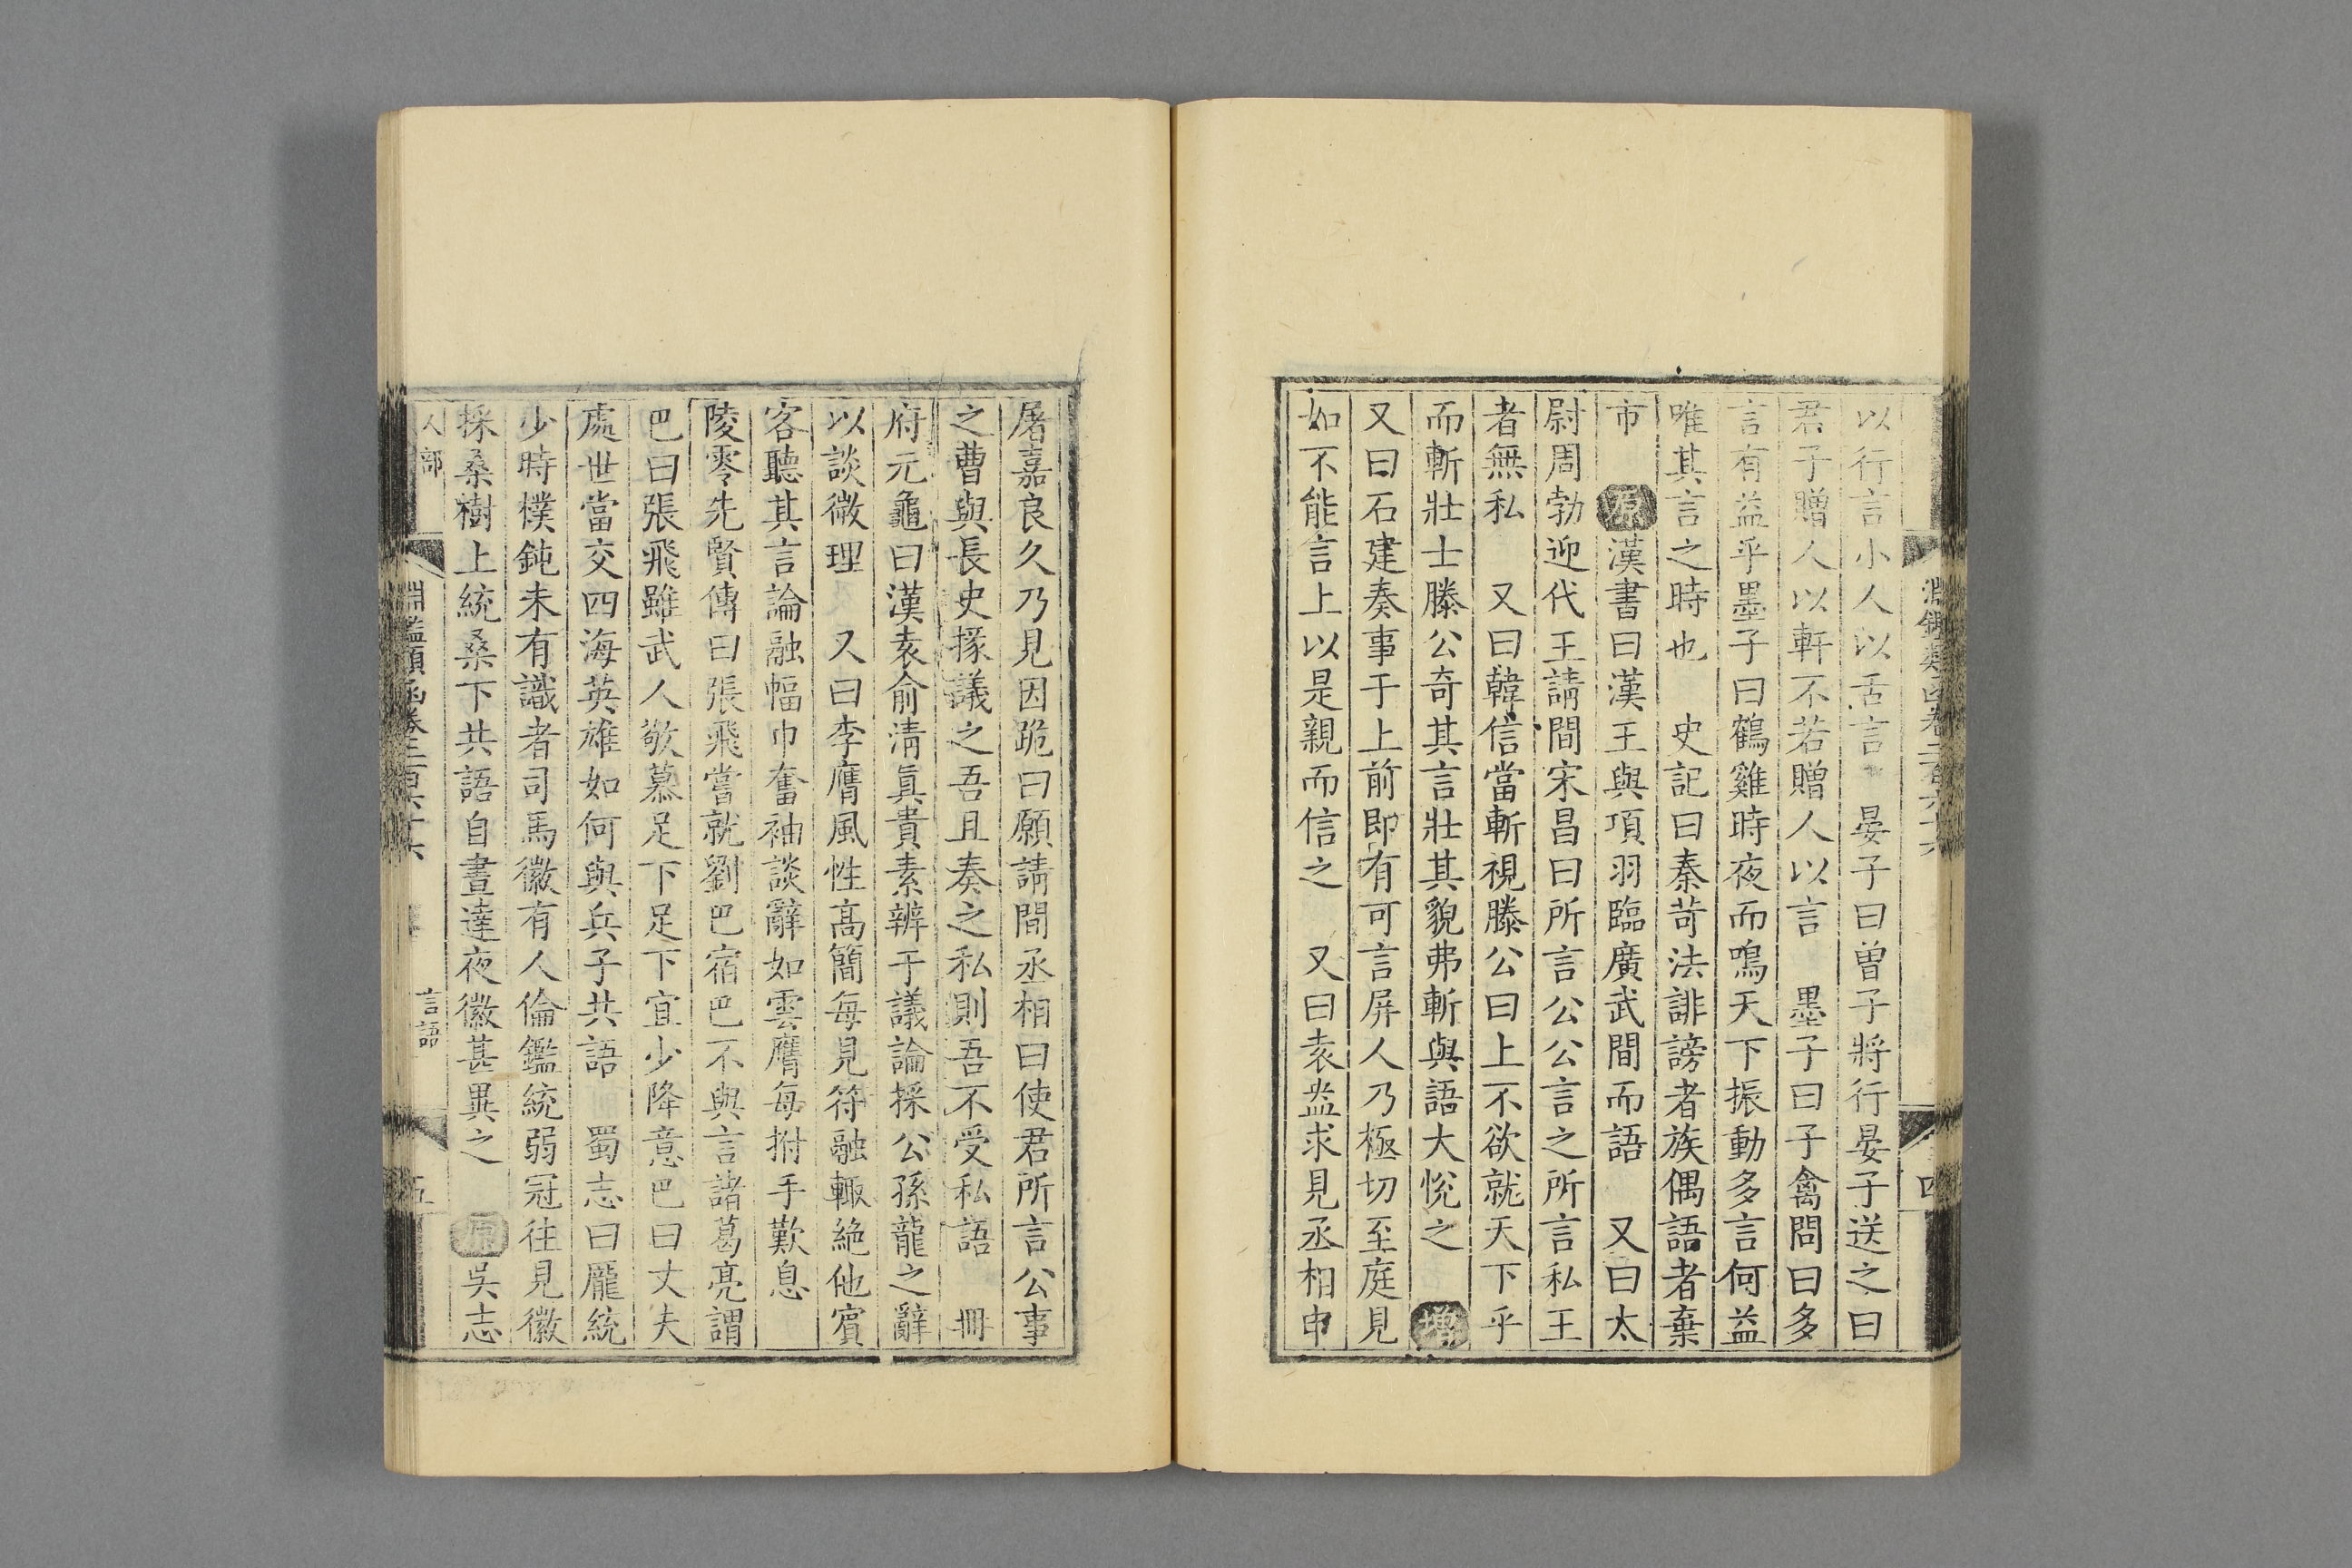 以行言小人以舌言　晏子曰曾子將行晏子送之曰
君子贈人以軒不若贈人以言　墨子曰子禽問曰多
言有益乎墨子曰鶴雞時夜而鳴天下振動多言何益
唯其言之時也　史記曰秦苛法誹謗者族偶語者棄
市　原漢書曰漢王與項羽臨廣武間而語　又曰太
尉周勃迎代王請間宋昌曰所言公公言之所言私王
者無私　又曰韓信當斬視滕公曰上不欲就天下乎
而斬壯士滕公奇其言壯其貌弗斬與語大悅之　增
又曰石建奏事于上前即有可言屏人乃極切至庭見
如不能言上以是親而信之　又曰袁盎求見丞相申
屠嘉良久乃見因跪曰願請間丞相曰使君所言公事
之曹與長史掾議之吾且奏之私則吾不受私語　冊
府元龜曰漢袁俞清眞貴素辨于議論採公孫龍之辭
以談微理　又曰李膺風性高簡每見符融輙絶他賓
客聽其言論融幅巾奮袖談辭如雲膺每拊手歎息
陵零先賢傳曰張飛嘗就劉巴宿巴不與言諸葛亮謂
巴曰張飛雖武人敬慕足下足下宜少降意巴曰丈夫
處世當交四海英雄如何與兵子共語　蜀志曰龐統
少時樸鈍未有識者司馬徽有人倫鑑統弱冠往見徽
採桑樹上統桑下共語自晝達夜徽甚異之　原吳志
人部
淵鑑類函卷二百六十六
言語
五